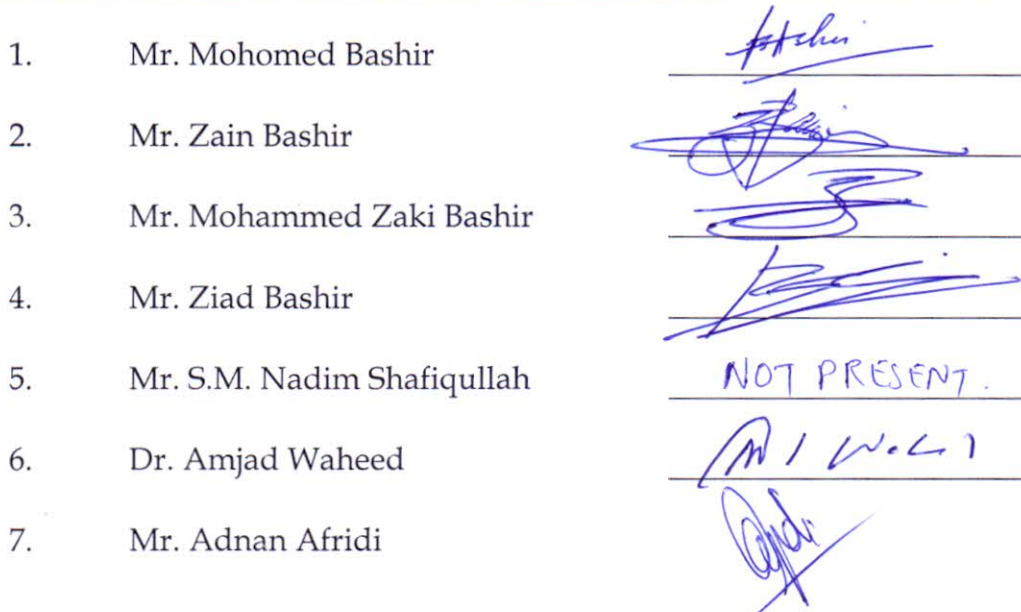 1. Mr. Mohomed Bashir
2. Mr. Zain Bashir
3. Mr. Mohammed Zaki Bashir
4. Mr. Ziad Bashir
5. Mr. S.M. Nadim Shafiqullah NOT PRESENT.
6. Dr. Amjad Waheed
7. Mr. Adnan Afridi